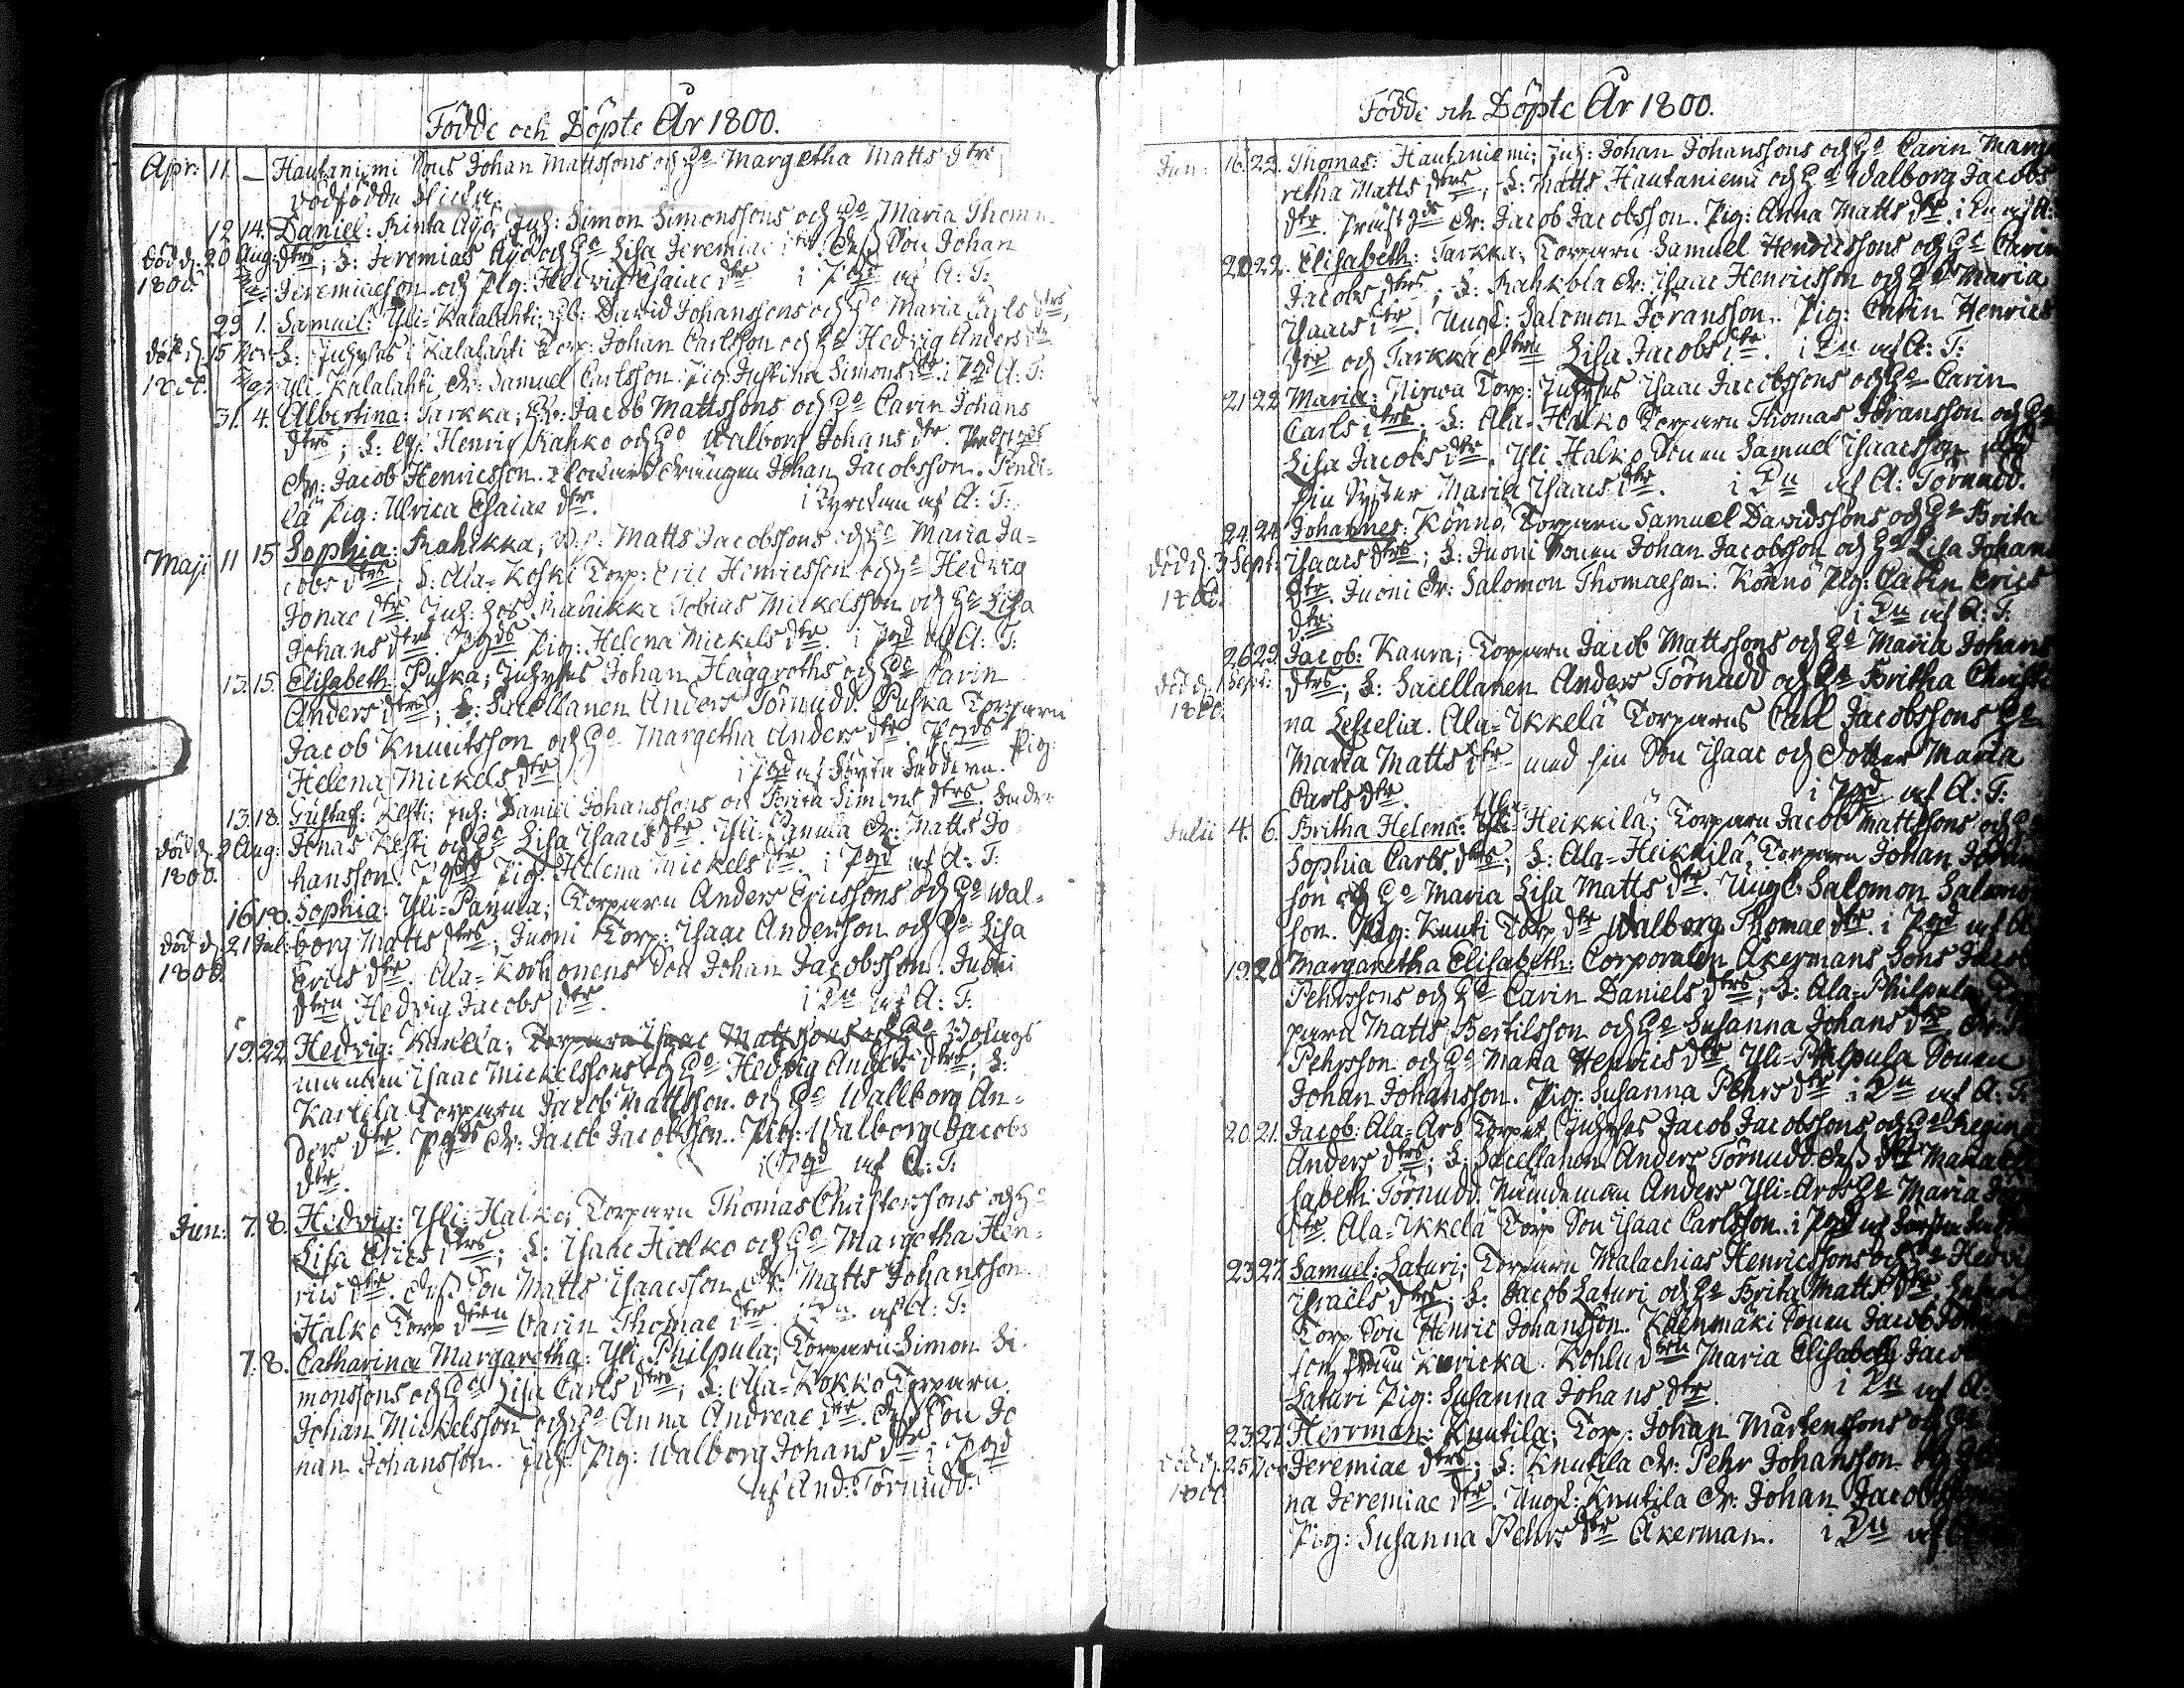 Födde och Döpte År 1800.
Apr: 11. — Hautaniemi Sons Johan Mattssons och H:o Margetha Matts dtrs
dödfödda
12 14. Daniel: Rinta Äijö; Inh: Simon Simonssons och H:o Maria Thomæ
död d. 20 Aug: dtrs; S: Jeremias Äijö och H:o Lisa Jeremiae dtr. Dess Son Johan
1800. Jeremiaeson och Pig: Hedvig Esaiae dtr i Pgd af A: T:
29 1. Samuel: Yli-Kalalahti; David Johanssons och H:o Maria Carls dtrs,
död d. 15 Nov: S: Inhyses i Kalalahti Torp: Johan Carlsson och H:o Hedvig Anders dtr
1800. Maji Yli-Kalalahti Dr: Samuel Carlsson. Pig: Justina Simons dtr. i Pgd A: T:
31. 4. Albertina: Tarkka; Jacob Mattssons och H:o Carin Johans
dtrs; S: Henric Rahko och H:o Walborg Johans dtr. Prestgds
Dr: Jacob Henricsson. Drängen Johan Jacobsson. Pendi-
lä Pig: Ulrica Esaiae dtr. i Kyrckan af A: T:
Maji 11 15 Sophia: Rahikka; Matts Jacobssons och H:o Maria Ja-
cobs dtrs; S: Ala-Koski Torp: Eric Henricsson och H:o Hedvig
Jonae dtr. Inh: hos Rahikka Tobias Mickelsson och H:o Lisa
Johans dtr. Pgds Pig: Helena Mickels dtr. i Pgd af A: T:
13. 15. Elisabeth: Puska; Inhyses Johan Häggroths och H:o Carin
Anders dtrs; S: Sacellanen Anders Törnudd. Puska Torparn
Jacob Knuutsson och H:o Margetha Anders dtr. Pgds Pig:
Helena Mickels dtr. i Pgd af
13. 18. Gustaf: Kesti; Inh: Daniel Johanssons och Brita Simons dtrs.
död d. 2 Aug: Jonas Kesti och H:o Lisa Isaacs dtr. Yli-Panula Dr: Matts Jo-
1800. hansson. Pgds Pig: Helena Mickels dtr. i Pgd af A: T:
16 18. Sophia: Yli-Panula; Torparn Anders Ericssons och H:o Wal-
död d. 21 Jul: borg Matts dtrs; Juoni Torp: Isaac Andersson och H:o Lisa
1800. Erics dtr. Ala-Korhonens Son Johan Jacobsson. Juoni
dtrn Hedvig Jacobs dtr. i Bn af A: T:
19. 22. Hedvig: Karlila; Torparn Isaac Mattssons och H:o Bolags
mannen Isaac Mickelssons och H:o Hedvig Anders dtrs; S:
Karlila Torparn Jacob Mattsson och H:o Wallborg An-
ders dtr. Pgds Dr: Jacob Jacobsson. Pig: Walborg Jacobs
dtr. i Pgd af A: T:
Jun: 7. 8. Hedvig: Yli-Halko; Torparn Thomas Christerssons och H:o
Lisa Erics dtrs; S: Isaac Halko och H:o Margetha Hen-
rics dtr. Dess Son Matts Isaacsson. Dr: Matts Johansson.
Halko Torp dtrn Carin Thomae dtr. af A: T:
7. 8. Catharina Margaretha: Yli Philpula; Torparn Simon Si-
monssons och H:o Lisa Carls dtrs; S: Ala-Kokko Torparn
Johan Mickelsson och H:o Anna Andreae dtr. Dess Son Jo
han Johansson. Inh: Pig: Walborg Johans dtr. i Pgd
af And: Törnudd.
Födde och Döpte År 1800.
Jun: 16. 22. Thomas: Hautaniemi; Inh: Johan Johanssons och H:o Carin Marga
retha Matts dtrs; S: Matts Hautaniemi och H:o Walborg Jacobs
dtr. Prästgds Dr: Jacob Jacobsson. Pig: Anna Matts dtr. i Bn af A:
20. 22. Elisabeth: Tarkka; Torparn Samuel Henricssons och H:o Carin
Jacobs dtrs; S: Rahkola Dr: Isaac Henricsson och H:o Maria
Isaacs dtr. Ungk: Salomon Göransson. Pig: Carin Henrics
dtr och Tarkka dtrn Lisa Jacobs dtr. i Bn af A: T:
21. 22 Maria: Nirwa Torp: Inhyses Isaac Jacobssons och H:o Carin
Carls dtrs; S: Ala-Halko Torparn Thomas Göransson och H:o
Lisa Jacobs dtr. Yli Halko Sonen Samuel Isaacsson med
sin Syster Maria Isaacs dtr. i Bn af A: Törnudd.
24. 24. Johannes: Könnö Torparn Samuel Davidssons och H:o Brita
död d. 3 Sept: Isaacs dtrs; S: Juoni Sonen Johan Jacobsson och H:o Lisa Johans
1800. dtr. Juoni Dr: Salomon Thomaeson. Könnö Pig: Carin Erics
dtr: i Bn af A: T:
26. 29. Jacob: Kaura; Torparn Jacob Mattssons och H:o Maria Johans
död d. 1 Sept: dtrs; S: Sacellanen Anders Törnudd och H:o Britha Christi
1800. na Lescelia. Ala-Ikkelä Torparns Carl Jacobssons H:o
Maria Matts dtr med sin Son Isaac och Dotter Maria
Carls dtr. i Pgd af A: T:
Julii 4. 6. Britha Helena: Yli Ala-Heikkilä; Torparn Jacob Mattssons och H:o
Sophia Carls dtrs; S: Ala-Heikkilä Torparn Johan Johans
son och H:o Maria Lisa Matts dtr. Ungk: Salomon Salomo
son. Pig: Knuti Torp dtr Walborg Thomae dtr. i Pgd af A:
19. 20. Margaretha Elisabeth: Corporalen Åkermans Sons Jacob
Pehrssons och H:o Carin Daniels dtrs; S: Ala-Philpula Tor
parn Matts Bertilsson och H:o Susanna Johans dtr.
Pehrsson och H:o Maria Henrics dtr. Yli-Philpula Sonen
Johan Johansson. Pig: Susanna Pehrs dtr. i Bn af A: T:
20. 21. Jacob: Ala-Aro Torpet Inhyses Jacob Jacobssons och H:o Regina
Anders dtrs; S: Sacellanen Anders Törnudd. Dess dtr Maria Eli
sabeth Törnudd. Nämdeman Anders Yli-Aros H:o Maria
dtr. Ala-Ikkelä Torp Son Isaac Carlsson. i Pgd af
23. 27. Samuel: Laturi; Torparn Malachias Henricssons och H:o Hedvi
Israels dtrs; S: Jacob Laturi och H:o Brita Matts dtr.
Torp Son Henric Johansson. Koenmäki Sonen Jacob
son Kuricka. Maria Elisabeth Jacobs
Laturi Pig: Susanna Johans dtr. i Bn af A:
23. 27. Herrman: Knutila; Torp: Johan Mårtenssons och H:o
25 Jeremiae dtrs; S: Knutila Dr: Pehr Johansson
1800. na Jeremiae dtr. Ungk: Knutila Dr: Johan Jacobsson
Pig: Susanna Pehrs dtr Åkerman. i Bn af